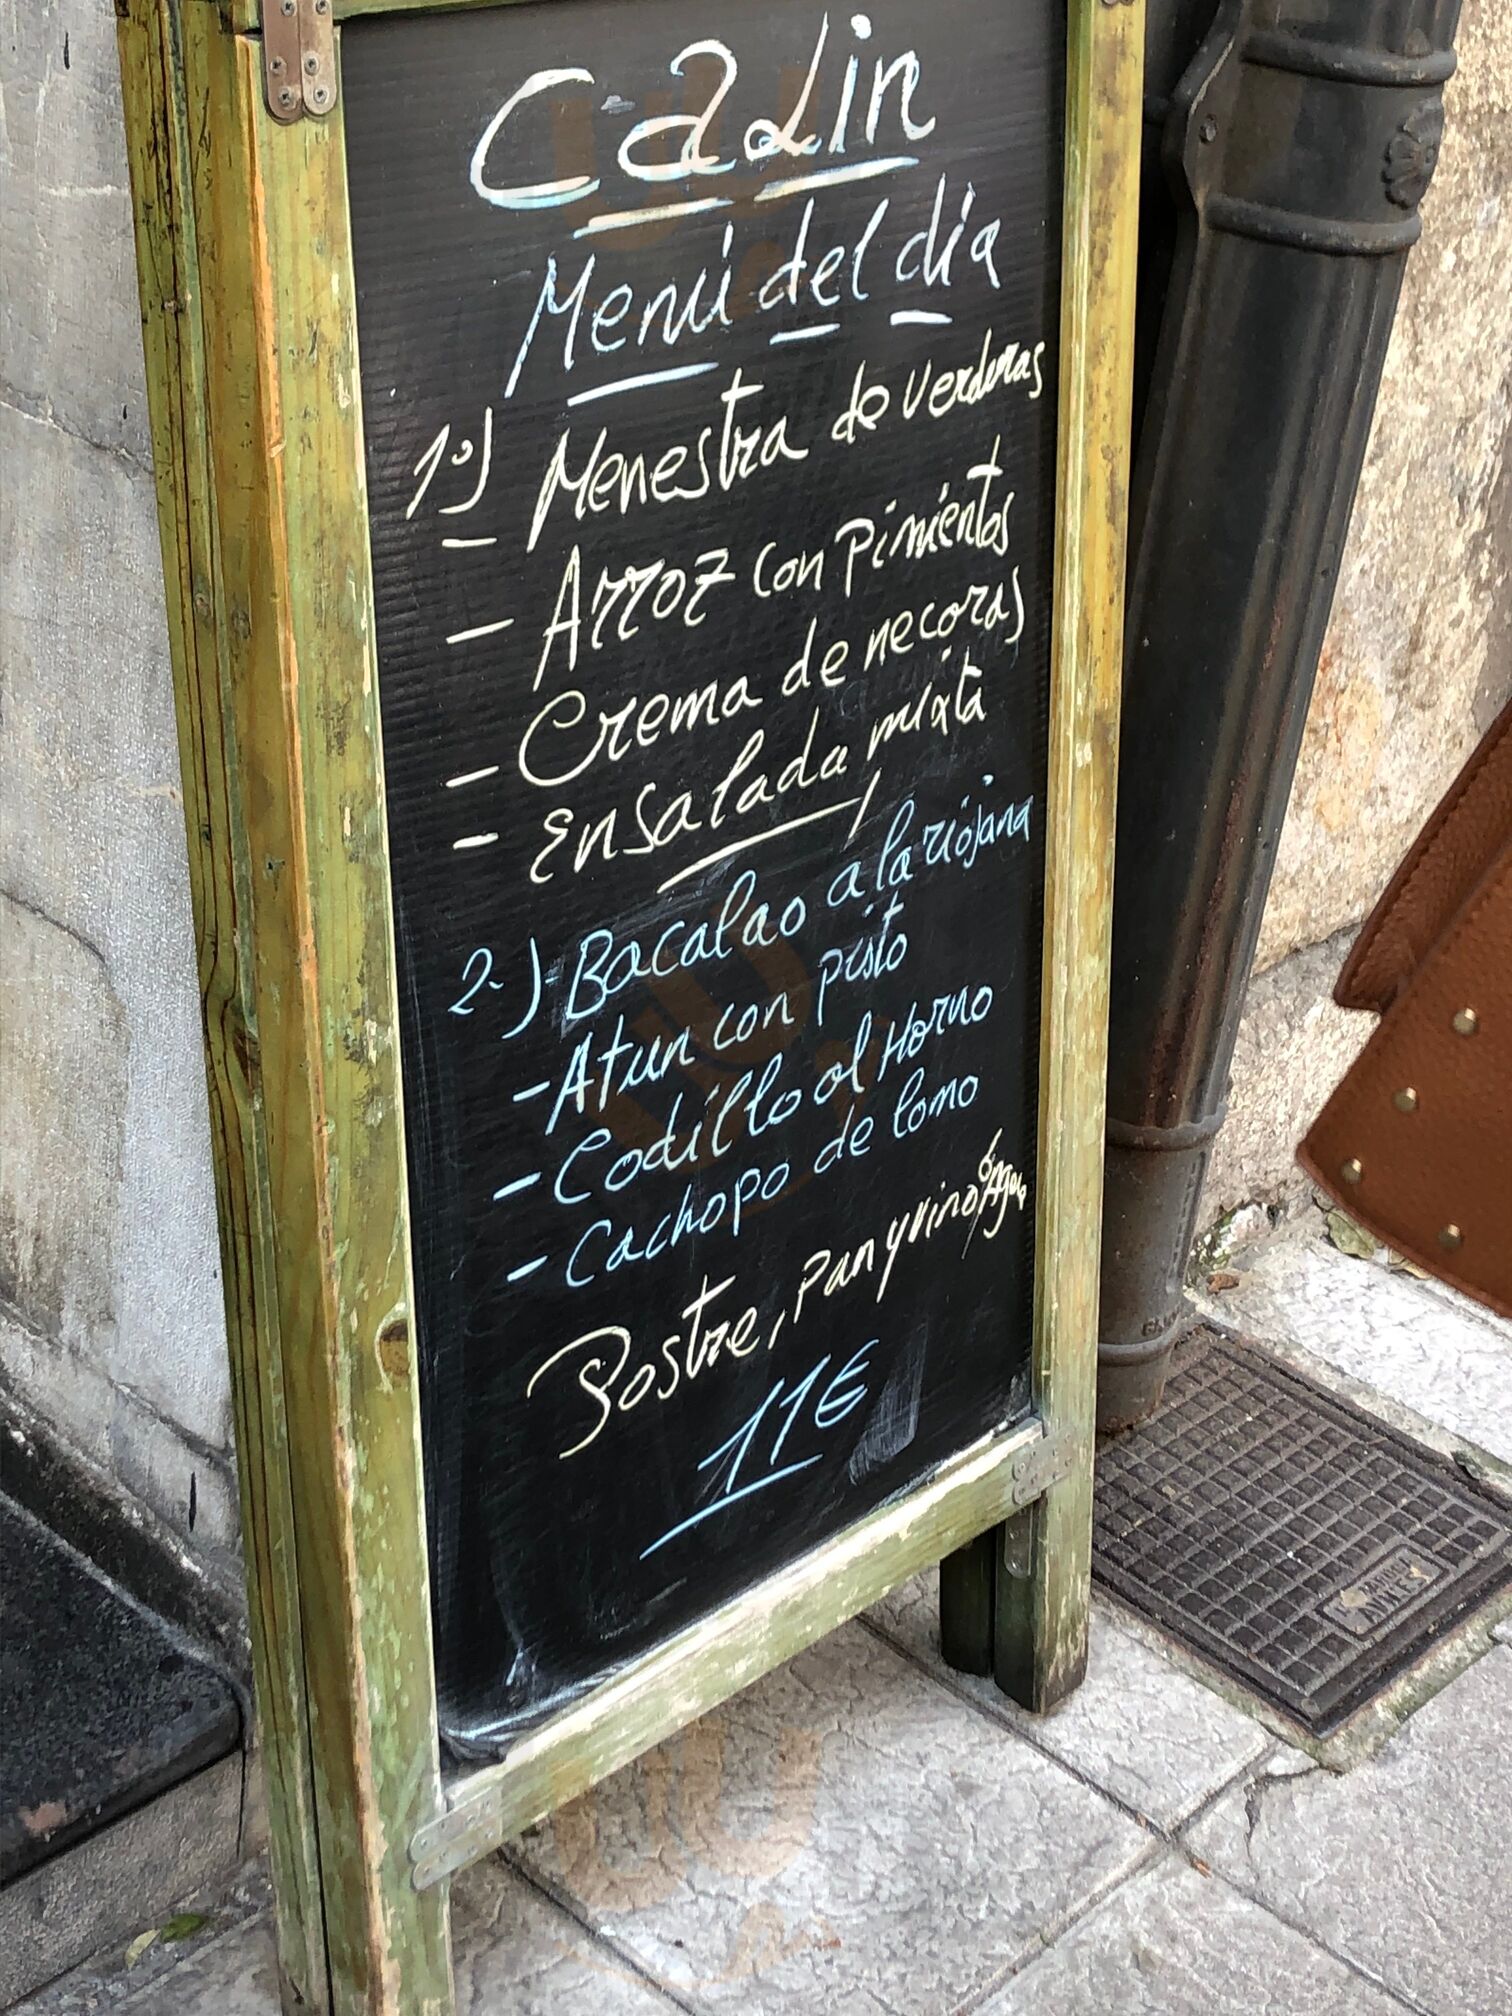 Calin
Menú del día
1º) Menestra de verduras
- Arroz con pimientos
- Crema de necoras
- Ensalada mixta
2.)-Bacalao a la riojana
- Atun con pisto
- Codillo al Horno
- Cachopo de lomo
Postre, Pan y vino ó Agua
11€